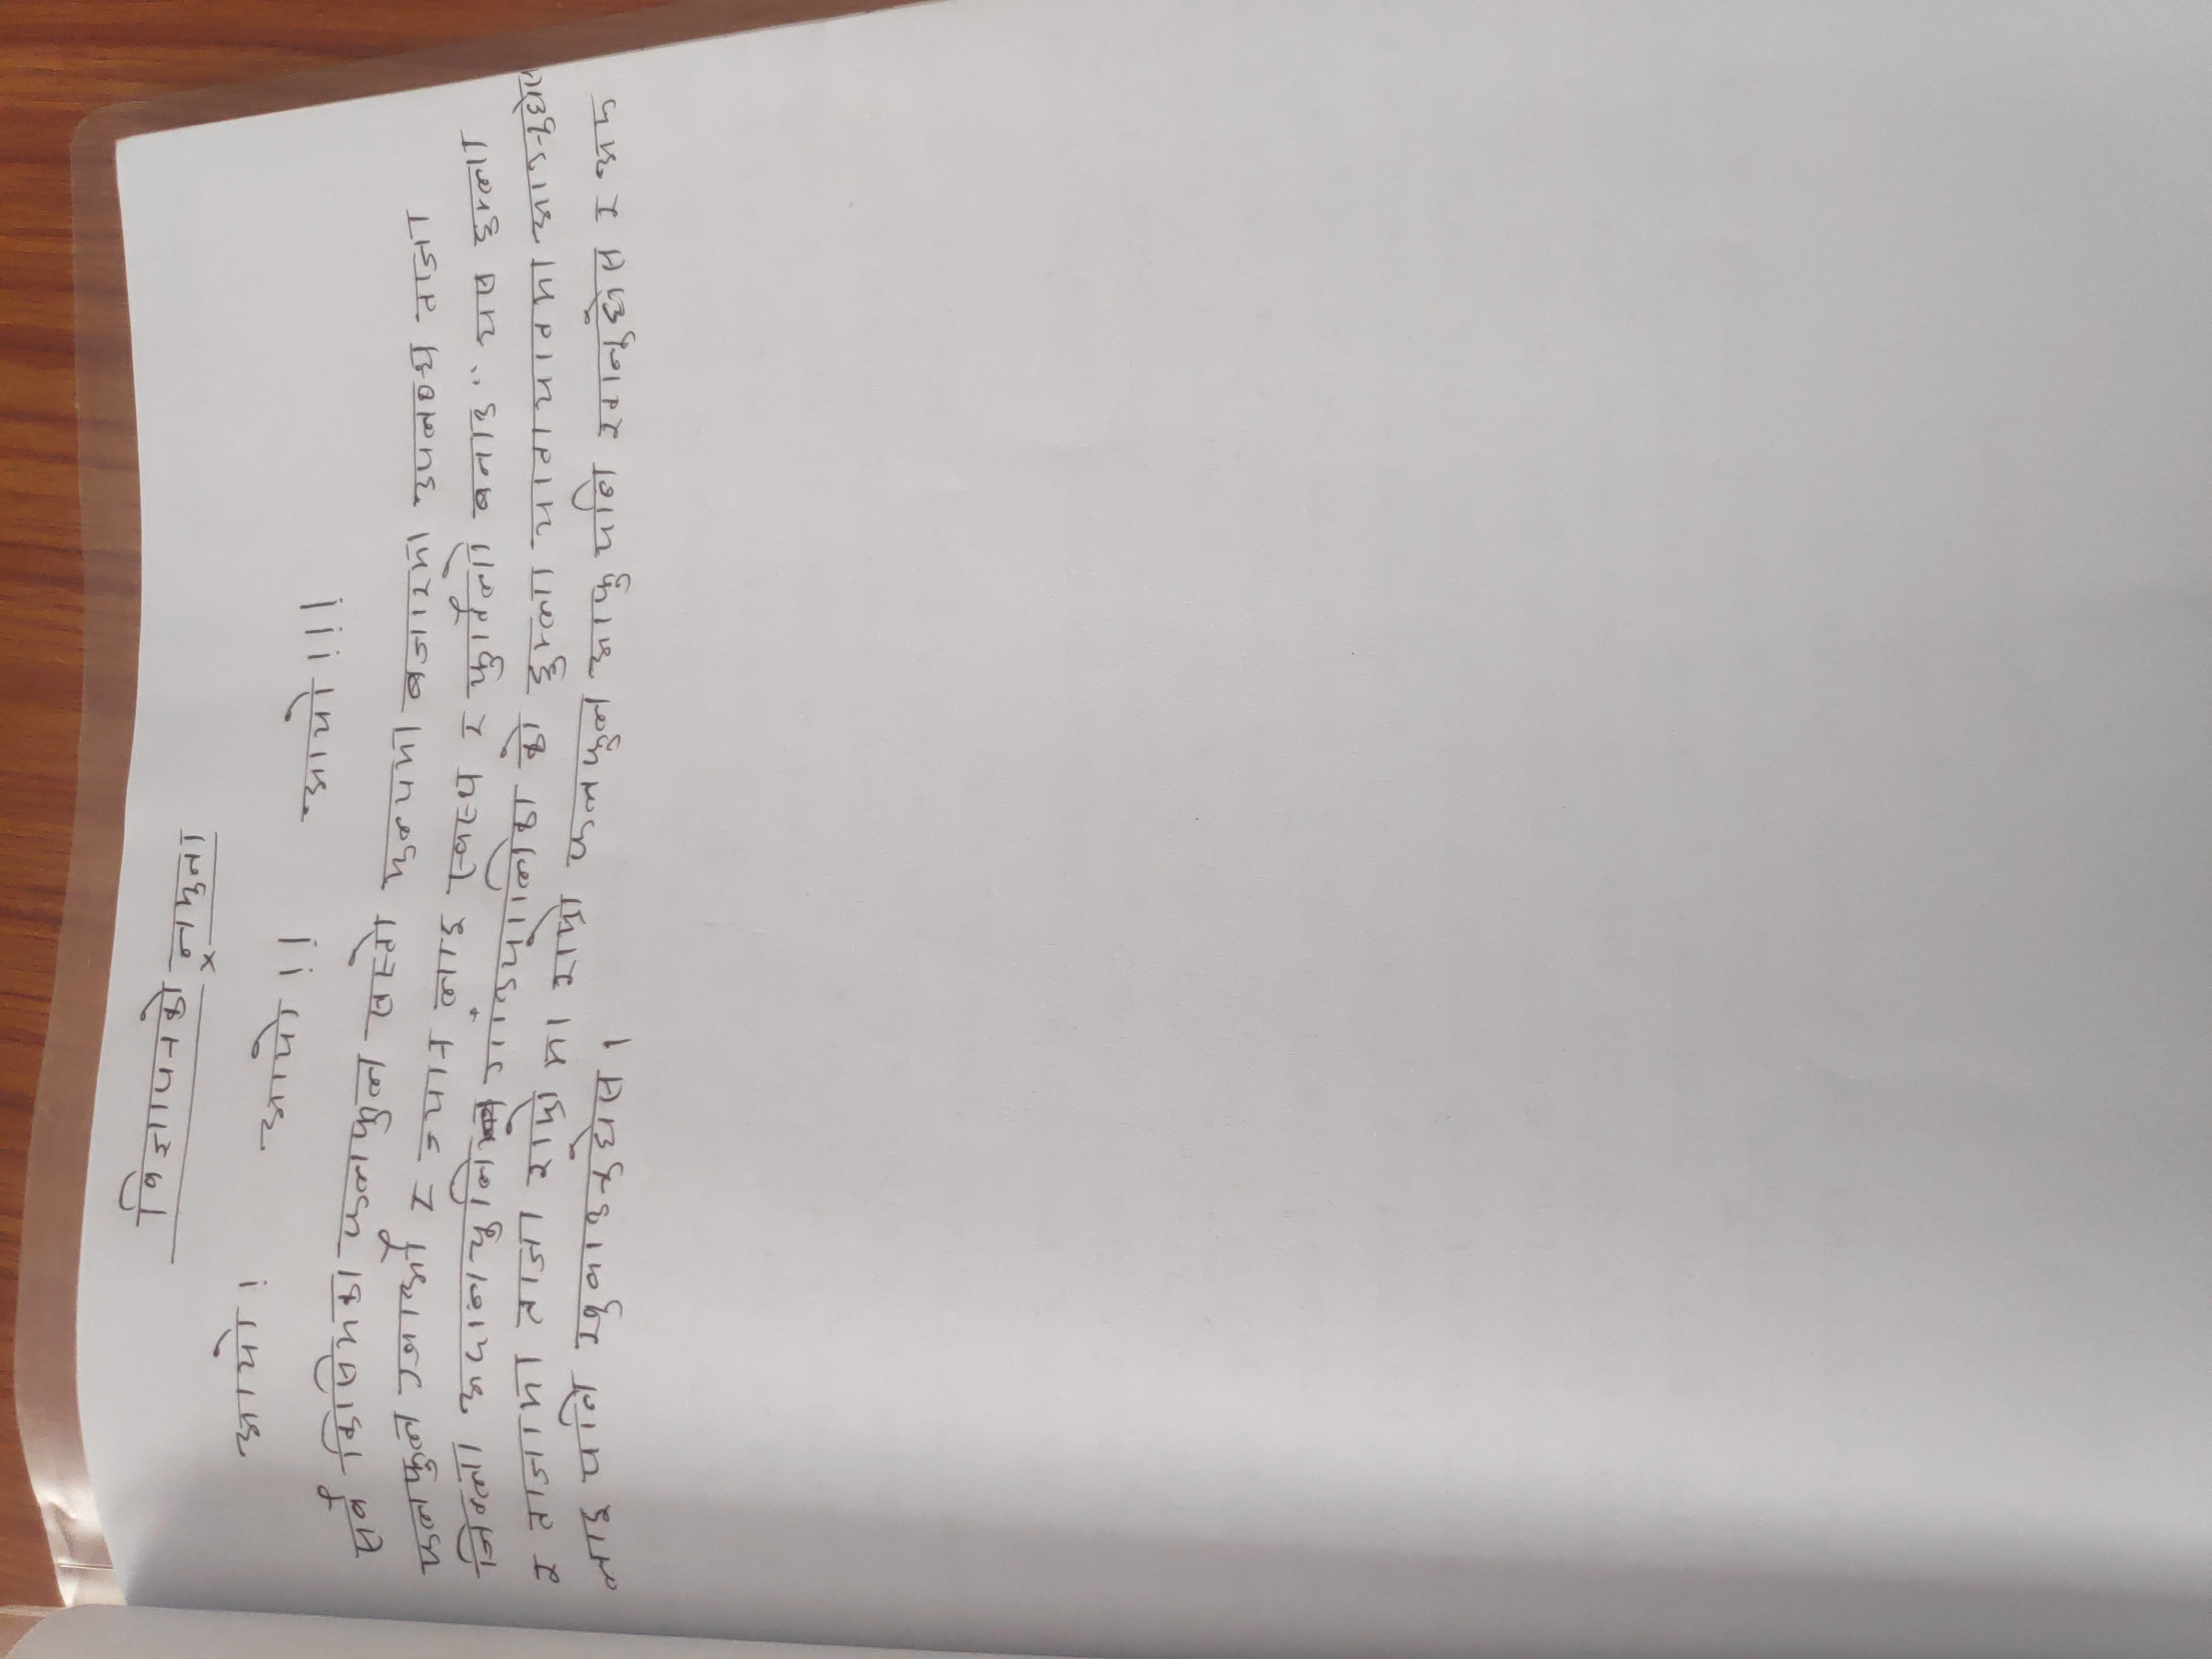 विज्ञापनको नमुना
आयो! आयो!! आयो!!!
सवै किसिमका फलफुल सस्तो मुल्यमा बजारमा उपलब्ध ताजा
फलफुल खाऔं र ज्यान लाइ स्वस्थ र फुर्तिलो बनाउ" यस हुम्ला
जिल्ला अदानचुलि गांउपालिका को हुम्ला यातायातमा आउनुहोस
र ताजामा ताजा राम्रो मा राम्रो फलफुल आफु पनि खानुहोस र अरु
लाइ पनि खुवाउनुहोस।